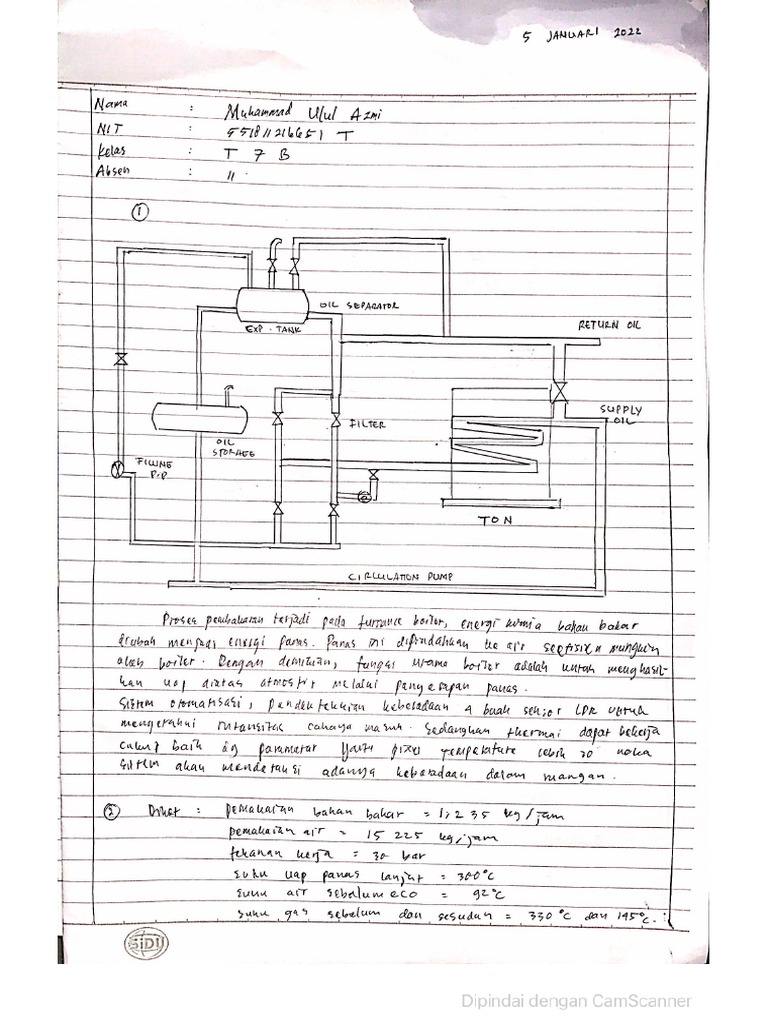 5 JANUARI 2022
Nama : Muhammad Ulul Azmi
NIT : 551811216651 T
Kelas : T 7 B
Absen : 11
1
OIL SEPARATOR
EXP. TANK
RETURN OIL
SUPPLY
OIL
FILTER
OIL
STORAGE
FILLING
P.P
TON
CIRCULATION PUMP
Proses pembakaran terjadi pada furnance boiler, energi kimia bahan bakar
dirubah menjadi energi panas. Panas ini dipindahkan ke air seefisien mungkin
oleh boiler. Dengan demikian, fungsi utama boiler adalah untuk menghasil-
kan uap diatas atmosfir melalui penyerapan panas.
Sistem otomatisasi, pendeteksian keberadaan 4 buah sensor LDR untuk
mengetahui intensitas cahaya masuk. Sedangkan thermal dapat bekerja
cukup baik dg parameter yaitu pixel temperature lebih 30 maka
sistem akan mendeteksi adanya keberadaan dalam ruangan.
2 Diket : pemakaian bahan bakar = 1,235 kg/jam
pemakaian air = 15 225 kg/jam
tekanan kerja = 30 bar
suhu uap panas lanjut = 380°C
suhu air sebelum eco = 92°C
suhu gas sebelum dan sesudah = 330°C dan 195°C.
SIDU
Dipindai dengan CamScanner